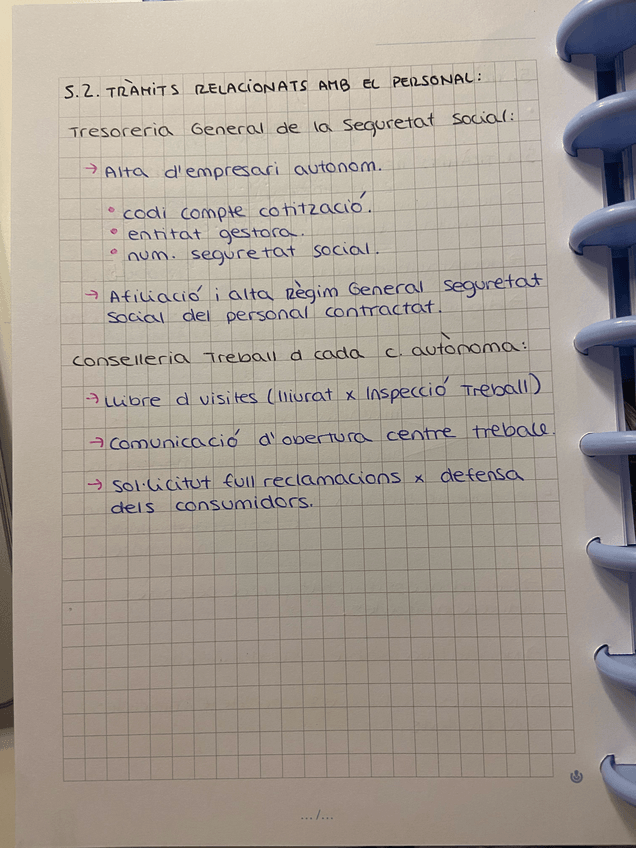 5.2. TRÀMITS RELACIONATS AMB EL PERSONAL:
Tresoreria General de la Seguretat Social:
→ Alta d'empresari autonom.
• codi compte cotització.
• entitat gestora.
• num. seguretat social.
→ Afiliació i alta Règim General seguretat
social del personal contractat.
Conselleria Treball d cada c. autònoma:
→ Llibre d visites (lliurat x Inspecció Treball)
→ Comunicació d'obertura centre treball.
→ Sol·licitut full reclamacions x defensa
dels consumidors.
.../...